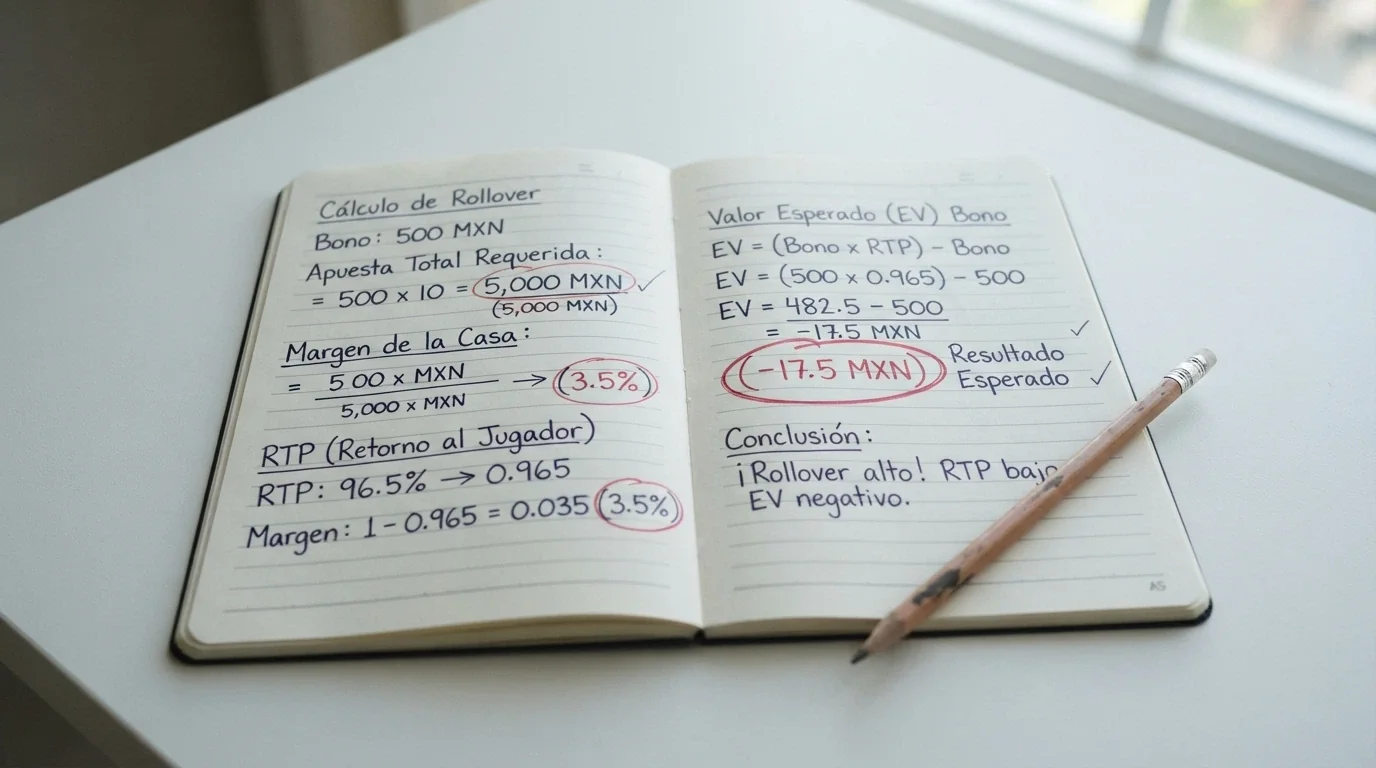 Cálculo de Rollover
Bono: 500 MXN
Apuesta Total Requerida:
= 500 x 10 = 5,000 MXN ✓
(5,000 MXN)
Margen de la Casa:
= 5 00 x MXN → (3.5%)
5,000 x MXN
RTP (Retorno al Jugador)
RTP: 96.5% → 0.965
Margen: 1 - 0.965 = 0.035 (3.5%)
Valor Esperado (EV) Bono
EV = (Bono x RTP) - Bono
EV = (500 x 0.965) - 500
EV = 482.5 - 500
= -17.5 MXN ✓
(-17.5 MXN) Resultado
Esperado ✓
Conclusión:
¡Rollover alto! RTP bajo
EV negativo.